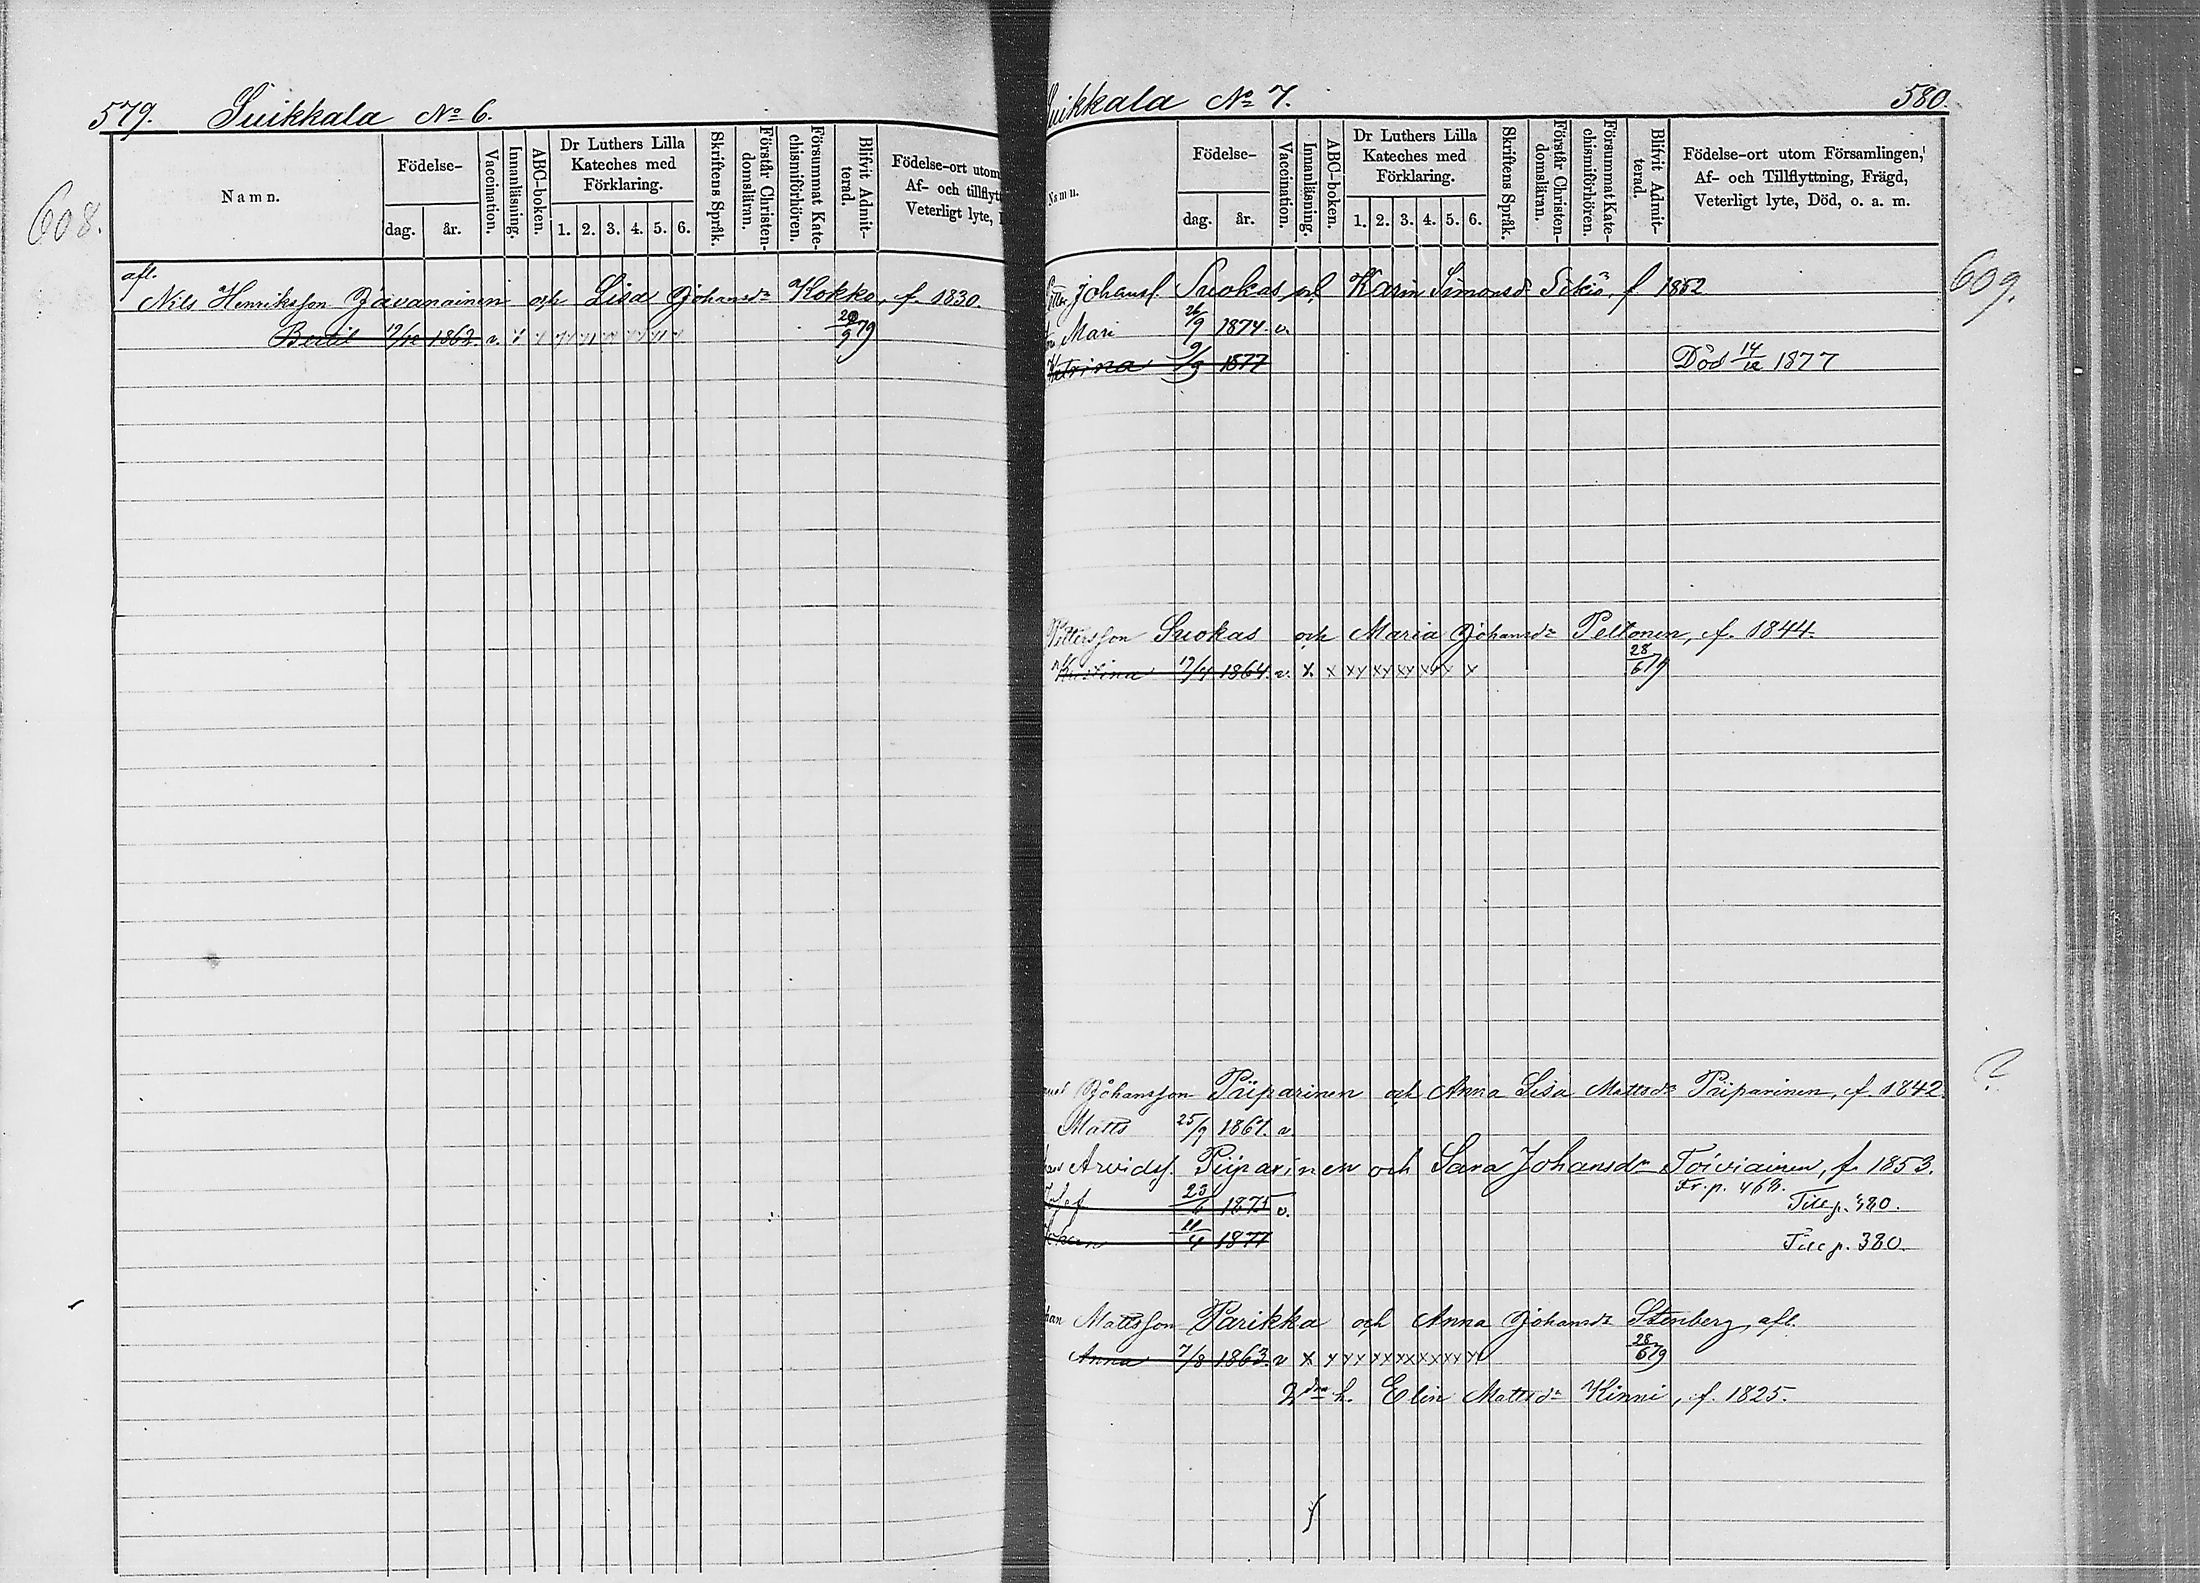 579. Suikkala No 6.
608.
Namn.
Födelse-
dag. år.
Vaccination.
Innanläsning.
ABC-boken.
Dr Luthers Lilla
Kateches med
Förklaring.
1. 2. 3. 4. 5. 6.
Skriftens Språk.
Förstår Christen-
domsläran.
Försummat Kate-
chismiförhören.
Blifvit Admit-
terad.
Födelse-ort utom
Af- och tillflytt
Veterligt lyte,
afl.
Nils Henriksson Javanainen och Lisa Johansdr Kokko, f. 1830.
Bertil 19/12 1863. v.
uikkala No 7. 580.
609.
Namn.
Födelse-
dag. år.
Vaccination.
Innanläsning.
ABC-boken.
Dr Luthers Lilla
Kateches med
Förklaring.
1. 2. 3. 4. 5. 6.
Skriftens Språk.
Förstår Christen-
domsläran.
Försummat Kate-
chismiförhören.
Blifvit Admit-
terad.
Födelse-ort utom Församlingen,
Af- och Tillflyttning, Frägd,
Veterligt lyte, Död, o. a. m.
Johansf. Suokas och Karin Simonsd f 1852
Mari 26/9 1874 v.
9/9 1877 Död 14/12 1877
Suokas och Maria Johansdr Peltonen, f. 1844.
Kristina 19/4 1864. v. x x xx xx xx xx x 28/6 79
?
Johansson Piiparinen och Anna Lisa Mattsdr Piiparinen, f. 1842.
Matts 25/9 1861. v.
Arvidsf. Piiparinen och Sara Johansdr Toiviainen, f. 1853.
Fr. p. 468.
23/6 1875 v. Till p. 380.
11/4 1877 Till p. 380.
Mattsson Parikka och Anna Johansdr Stenberg, afl.
Anna 7/8 1863. v x x xx xx xx xx xx 28/6 79
2dra h. Elin Mattsdr Kinni, f. 1825.